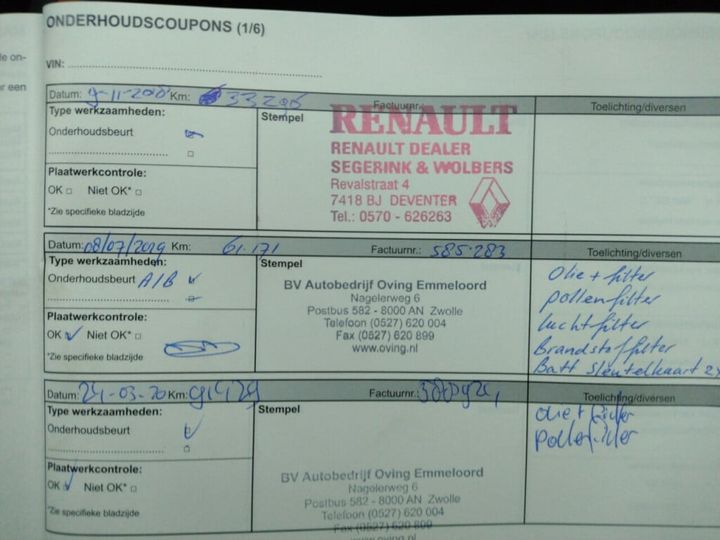 le on-
er een
ONDERHOUDSCOUPONS (1/6)
VIN:
Datum: Km: 33206 Factuurnr.: Toelichting/diversen
Type werkzaamheden:
Onderhoudsbeurt
Plaatwerkcontrole:
OK Niet OK*
*Zie specifieke bladzijde
Stempel
RENAULT
RENAULT DEALER
SEGERINK & WOLBERS
Revalstraat 4
7418 BJ DEVENTER
Tel.: 0570 - 626263
Datum: 08/07/2019 Km: 61.171 Factuurnr.: 585.283 Toelichting/diversen
Type werkzaamheden:
Onderhoudsbeurt A/B
Plaatwerkcontrole:
OK Niet OK*
*Zie specifieke bladzijde
Stempel
BV Autobedrijf Oving Emmeloord
Nagelerweg 6
Postbus 582 - 8000 AN Zwolle
Telefoon (0527) 620 004
Fax (0527) 620 899
www.oving.nl
Olie + filter
pollenfilter
luchtfilter
Brandstoffilter
Batt sleutelkaart 2x
Datum: 24-03-20 Km: Factuurnr.: Toelichting/diversen
Type werkzaamheden:
Onderhoudsbeurt
Plaatwerkcontrole:
OK Niet OK*
*Zie specifieke bladzijde
Stempel
BV Autobedrijf Oving Emmeloord
Nagelerweg 6
Postbus 582 - 8000 AN Zwolle
Telefoon (0527) 620 004
Fax (0527) 620 899
www.oving.nl
olie + filter
pollenfilter